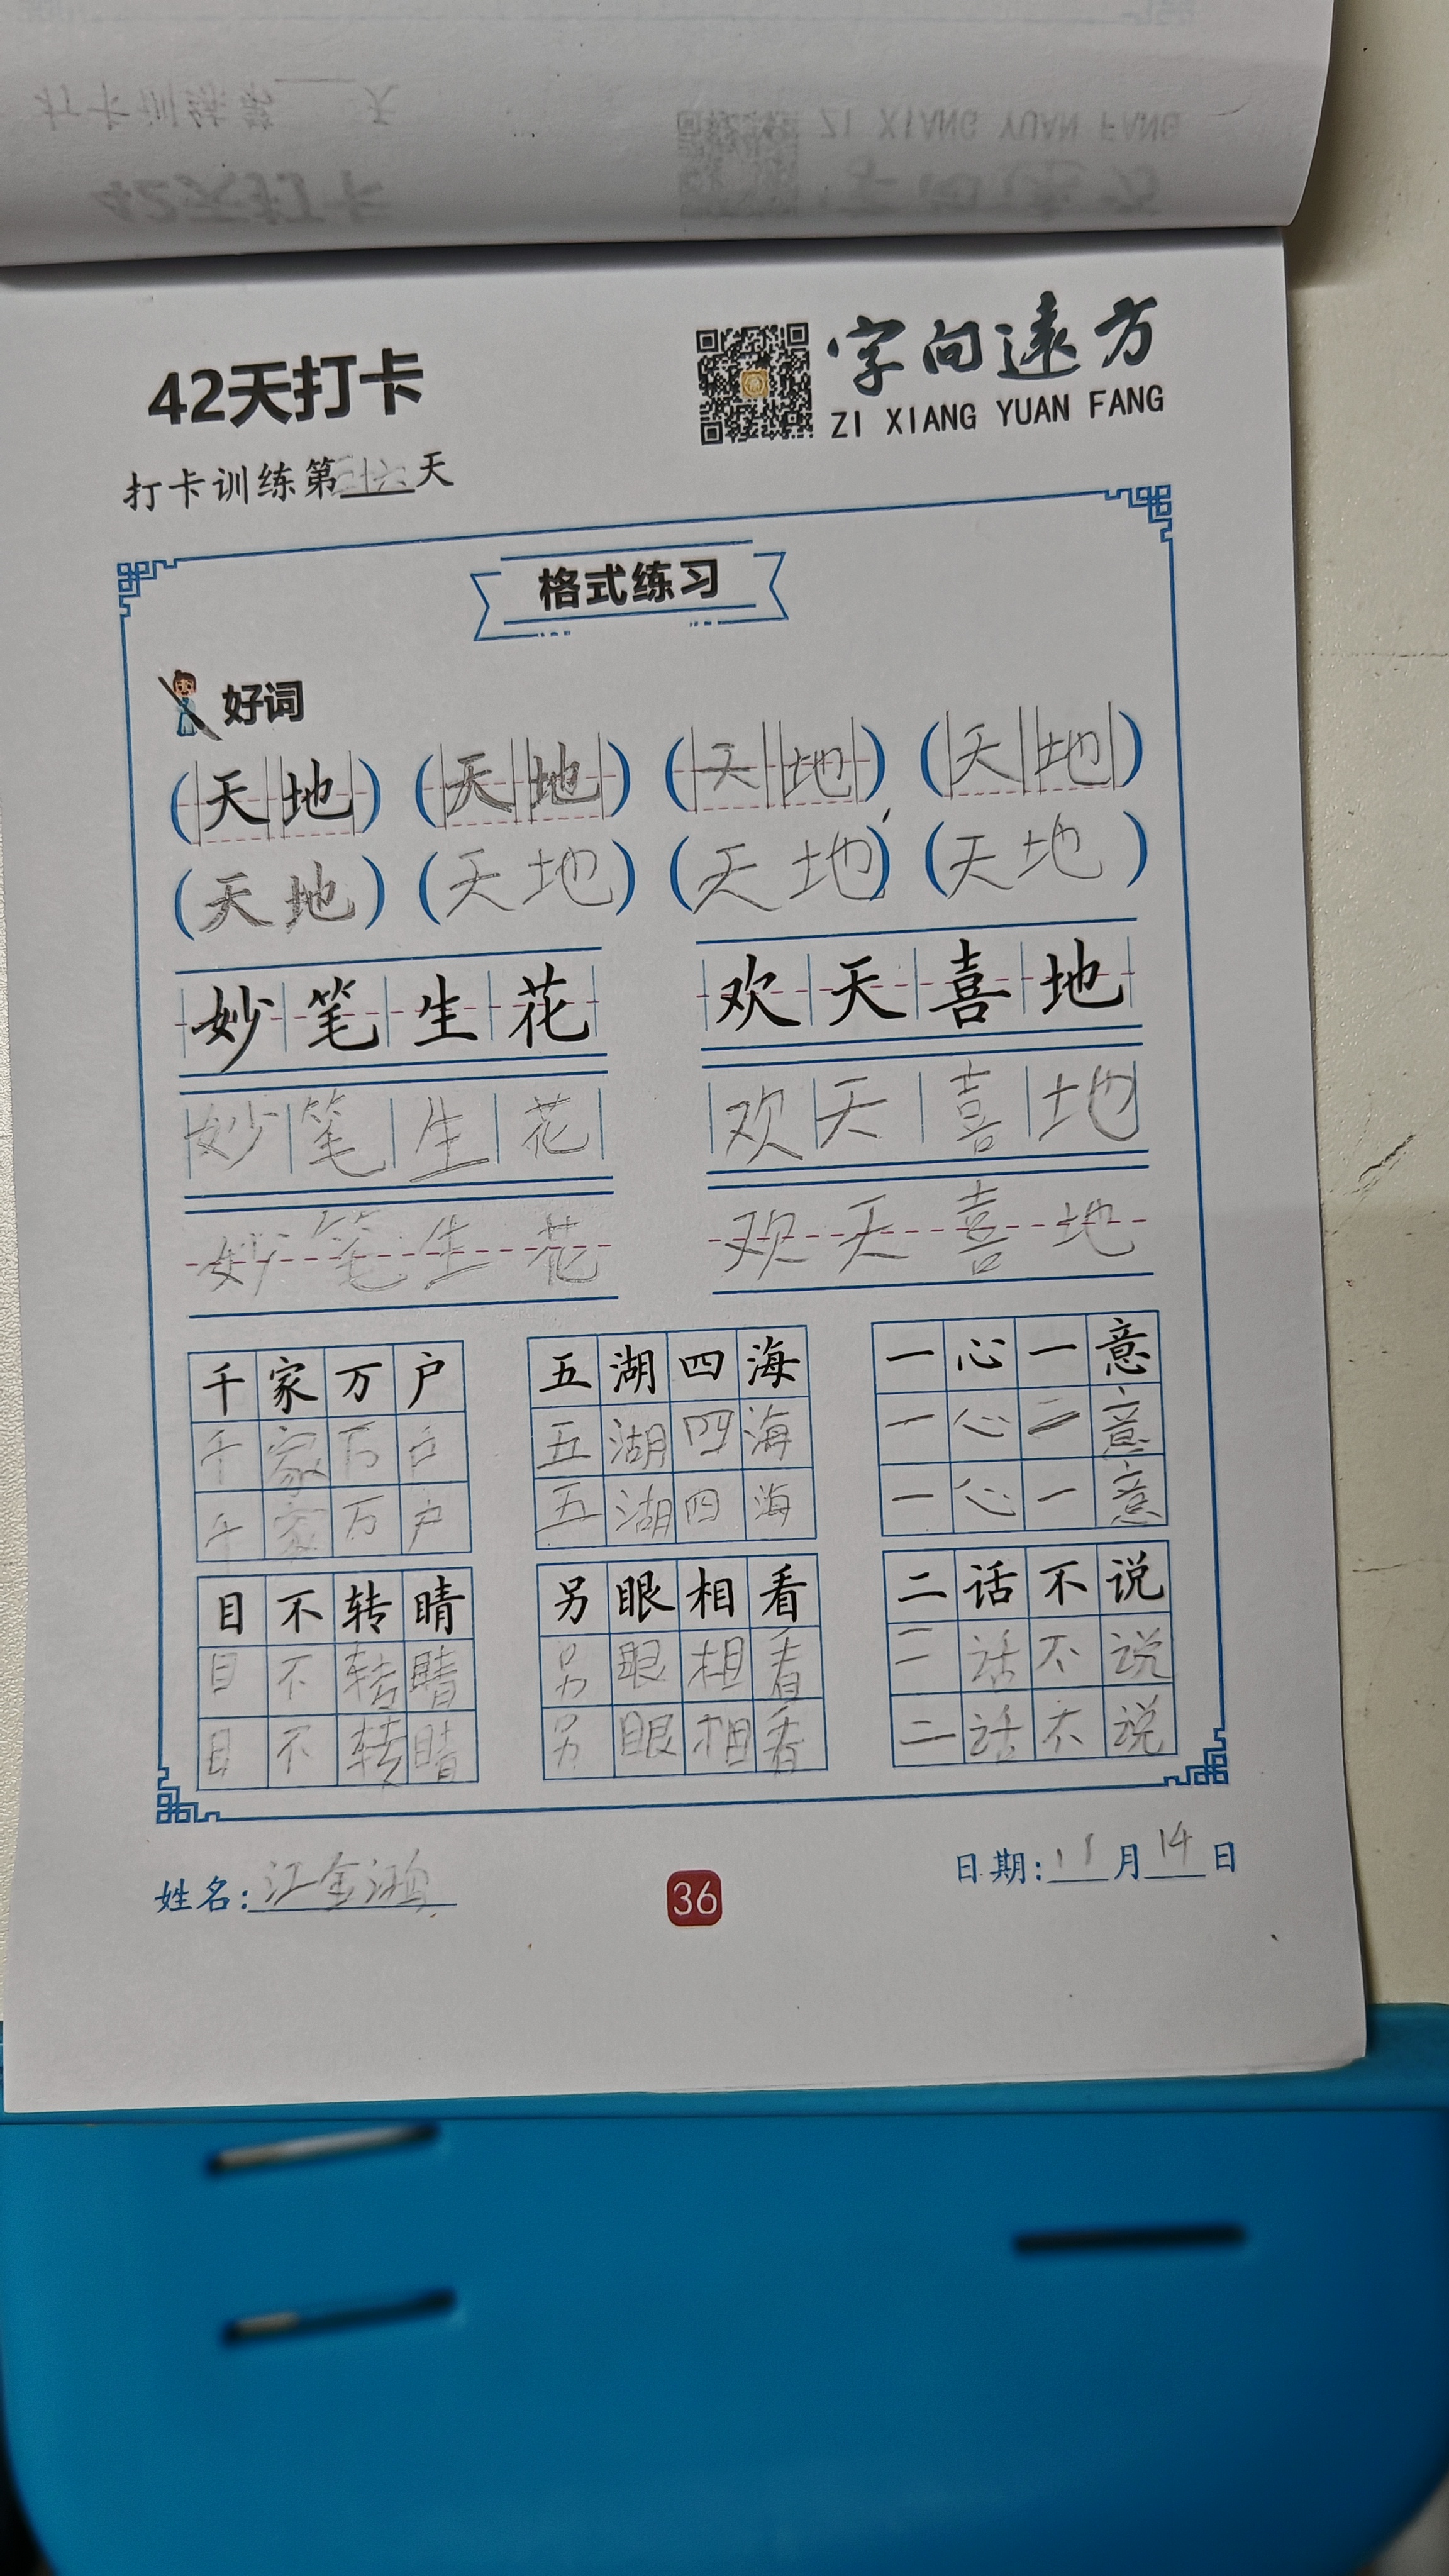 42天打卡
字向遠方
ZI XIANG YUAN FANG
打卡训练第三十六天
格式练习
好词
(天地) (天地) (天地) (天地)
(天地) (天地) (天地) (天地)
妙笔生花 欢天喜地
妙笔生花 欢天喜地
妙笔生花 欢天喜地
千家万户 五湖四海 一心一意
千家万户 五湖四海 一心二意
千家万户 五湖四海 一心一意
目不转睛 另眼相看 二话不说
目不转睛 另眼相看 二话不说
目不转睛 另眼相看 二话不说
姓名:江金鸿 36 日期:11月14日